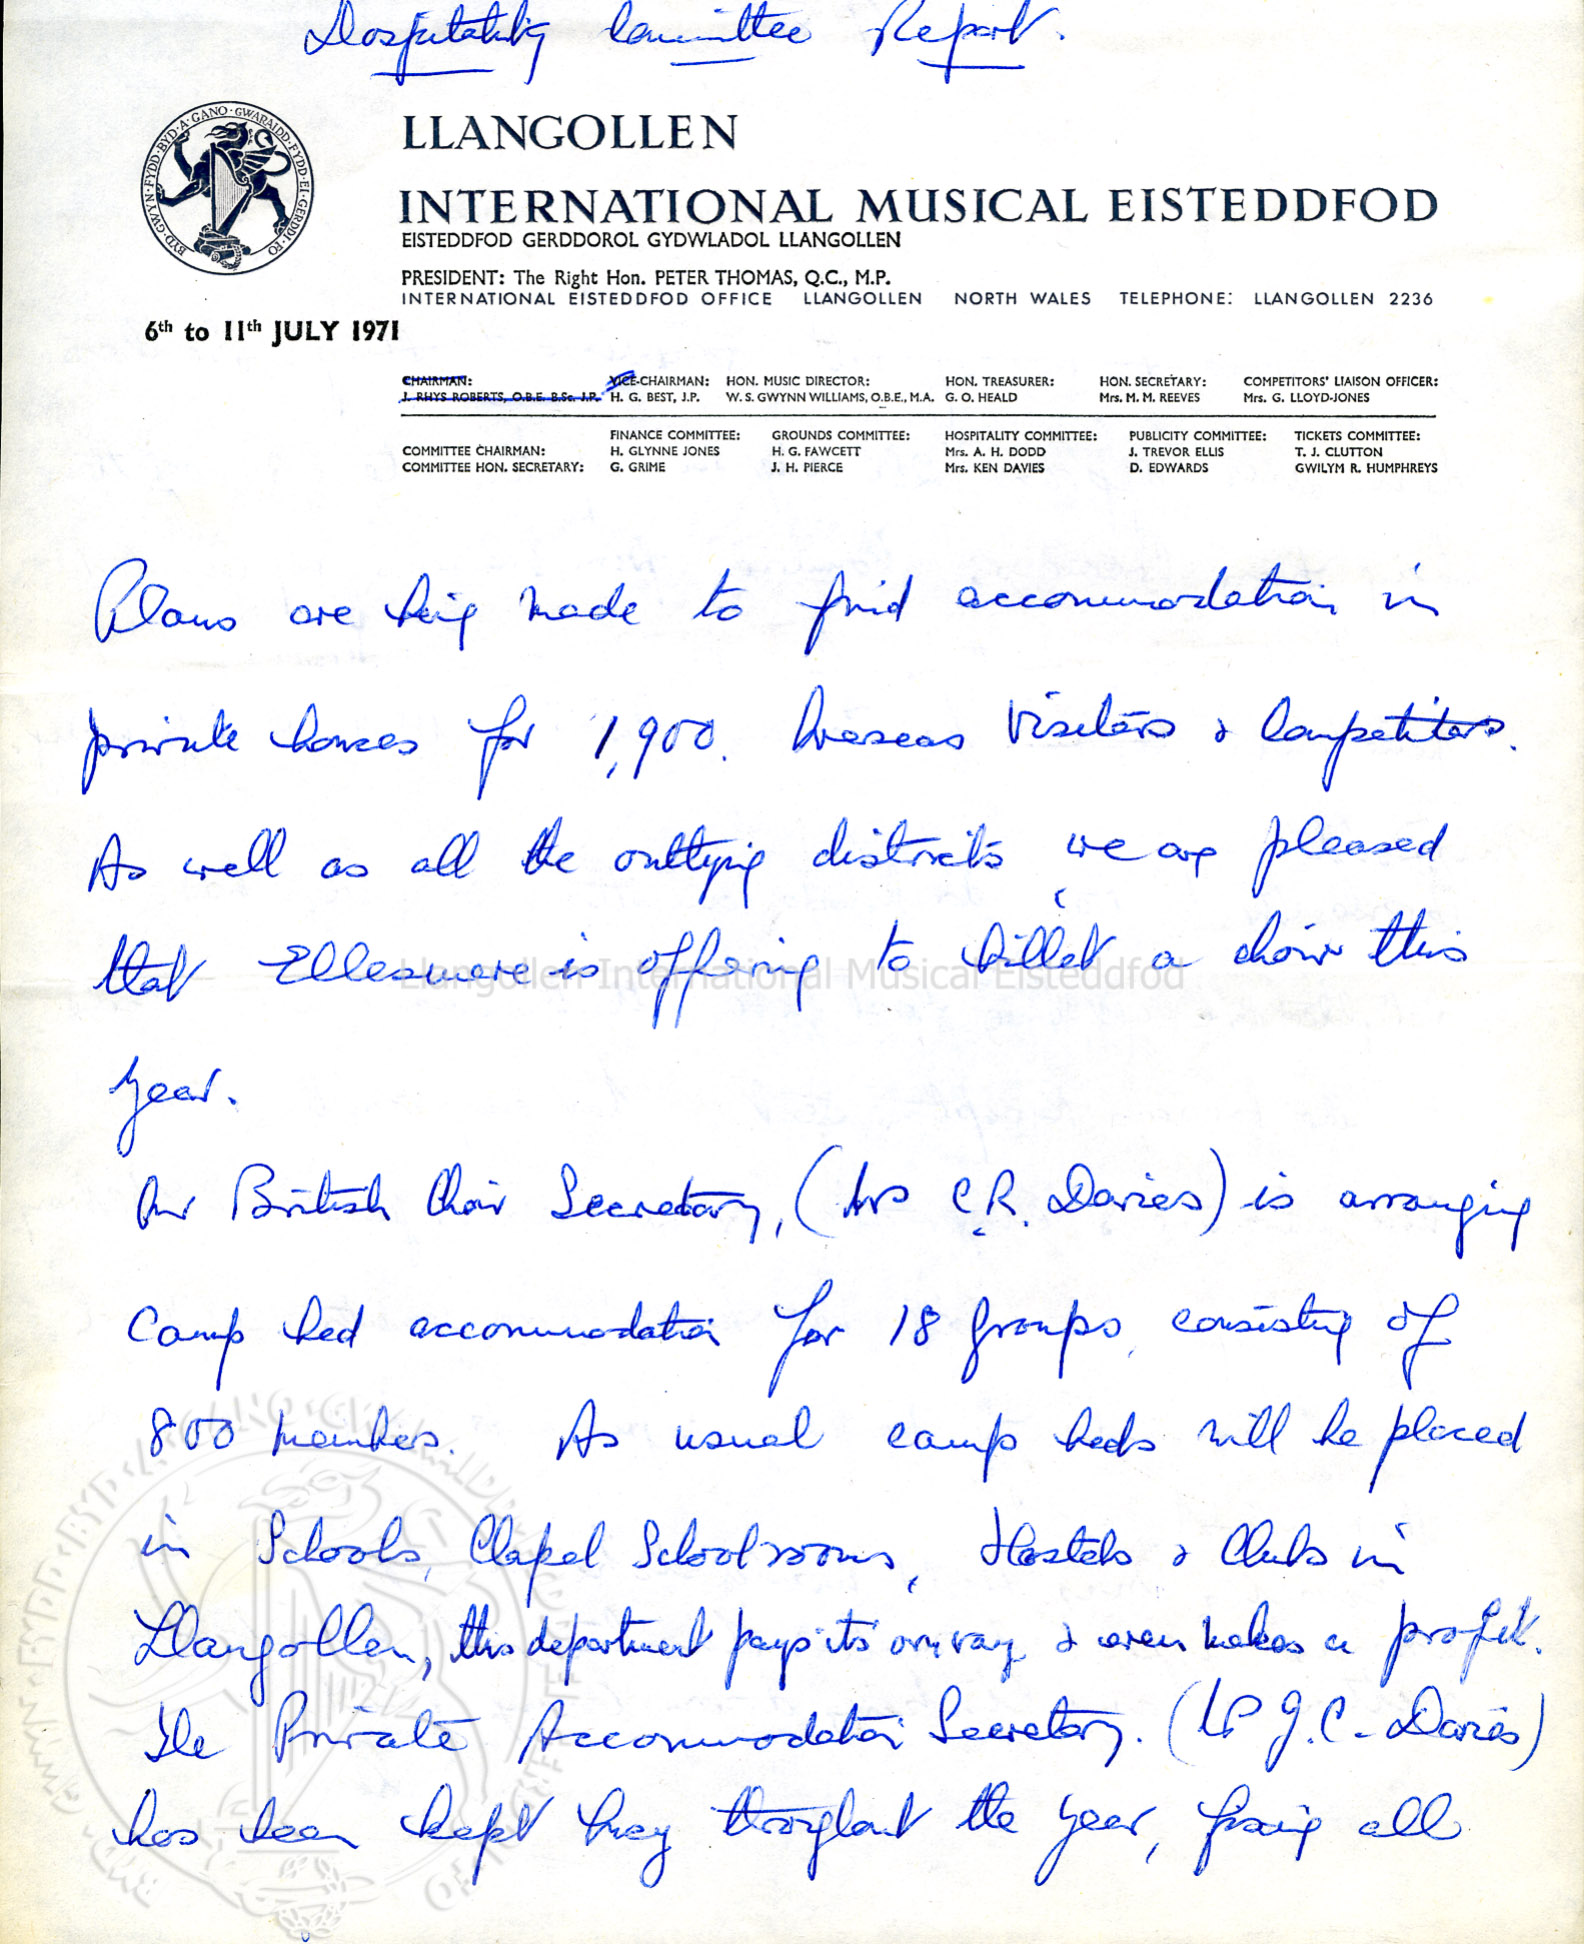 Hospitality Committee Report.
BYD GWYN FYDD BYD A GANO · GWARAIDD FYDD EI GERDDI FO
LLANGOLLEN
INTERNATIONAL MUSICAL EISTEDDFOD
EISTEDDFOD GERDDOROL GYDWLADOL LLANGOLLEN
PRESIDENT: The Right Hon. PETER THOMAS, Q.C., M.P.
INTERNATIONAL EISTEDDFOD OFFICE LLANGOLLEN NORTH WALES TELEPHONE: LLANGOLLEN 2236
6th to 11th JULY 1971
CHAIRMAN: VICE-CHAIRMAN: HON. MUSIC DIRECTOR: HON. TREASURER: HON. SECRETARY: COMPETITORS' LIAISON OFFICER:
J. RHYS ROBERTS, O.B.E. B.Sc. J.P. H. G. BEST, J.P. W. S. GWYNN WILLIAMS, O.B.E., M.A. G. O. HEALD Mrs. M. M. REEVES Mrs. G. LLOYD-JONES
FINANCE COMMITTEE: GROUNDS COMMITTEE: HOSPITALITY COMMITTEE: PUBLICITY COMMITTEE: TICKETS COMMITTEE:
COMMITTEE CHAIRMAN: H. GLYNNE JONES H. G. FAWCETT Mrs. A. H. DODD J. TREVOR ELLIS T. J. CLUTTON
COMMITTEE HON. SECRETARY: G. GRIME J. H. PIERCE Mrs. KEN DAVIES D. EDWARDS GWILYM R. HUMPHREYS
Plans are being made to find accommodation in
private houses for 1,900. Overseas Visitors & Competitors.
As well as all the outlying districts, we are pleased
that Ellesmere is offering to billet a choir this
Llangollen International Musical Eisteddfod
year.
Our British Choir Secretary, (Mrs C.R. Davies) is arranging
Camp bed accommodation for 18 groups, consisting of
800 members. As usual camp beds will be placed
in Schools, Chapel Schoolrooms, Hostels & Clubs in
Llangollen, this department pays its own way & even makes a profit.
The Private Accommodation Secretary. (Mr J.C. Davies)
has been kept busy throughout the year, fixing all